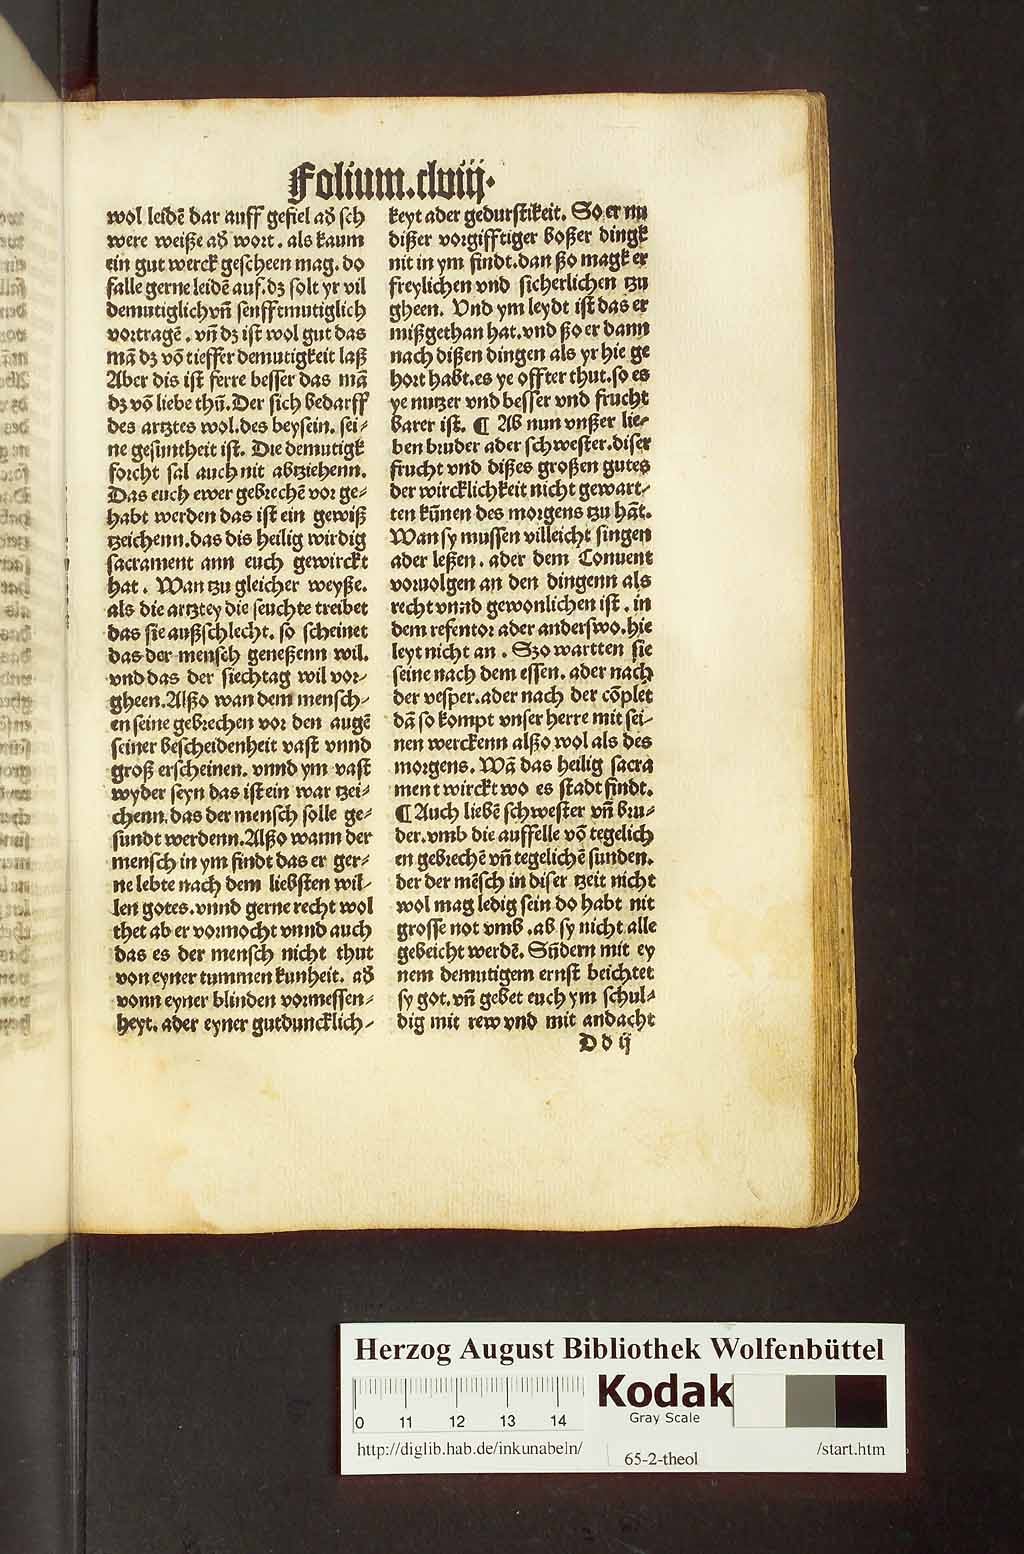 Folium.clviij.
wol leidē dar auff gefiel aď sch
were weiße aď wort. als kaum
ein gut werck gescheen mag. do
falle gerne leidē auf. dz solt yr vil
demutiglich vñ senfftmutiglich
vortragē. vñ dz ist wol gut das
mā dz vō tieffer demutigkeit laß
Aber dis ist ferre besser das mā
dz vō liebe thū. Der sich bedarff
des artztes wol. des beysein. sei⸗
ne gesuntheit ist. Die demutigk
forcht sal auch nit abtziehenn.
Das euch ewer gebrechē vor ge⸗
habt werden das ist ein gewiß
tzeichenn. das dis heilig wirdig
sacrament ann euch gewirckt
hat. Wan tzu gleicher weyße.
als die artztey die seuchte treibet
das sie außschlecht. so scheinet
das der mensch geneßenn wil.
vnd das der siechtag wil vor⸗
gheen. Alßo wan dem mensch⸗
en seine gebrechen vor den augē
seiner bescheidenheit vast vnnd
groß erscheinen. vnnd ym vast
wyder seyn das ist ein war tzei⸗
chenn. das der mensch solle ge⸗
sundt werdenn. Alßo wann der
mensch in ym findt das er ger⸗
ne lebte nach dem liebsten wil⸗
len gotes. vnnd gerne recht wol
thet ab er vormocht vnnd auch
das es der mensch nicht thut
von eyner tummen kunheit. aď
vonn eyner blinden vormessen⸗
heyt. ader eyner gutduncklich⸗
keyt ader gedurstikeit. So er nu
dißer vorgifftiger boßer dingk
nit in ym findt. dan ßo magk er
freylichen vnd sicherlichen tzu
gheen. Vnd ym leydt ist das er
mißgethan hat. vnd ßo er dann
nach dißen dingen als yr hie ge
hort habt. es ye offter thut. so es
ye nutzer vnd besser vnd frucht
barer ist. ¶ Ab nun vnßer lie⸗
ben bruder ader schwester. diser
frucht vnd dißes großen gutes
der wircklichkeit nicht gewart⸗
ten kūnen des morgens tzu hāt.
Wan sy mussen villeicht singen
ader leßen. ader dem Conuent
voruolgen an den dingenn als
recht vnnd gewonlichen ist. in
dem refentor ader anderswo. hie
leyt nicht an. Szo wartten sie
seine nach dem essen. ader nach
der vesper. ader nach der cōplet
dā so kompt vnser herre mit sei⸗
nen werckenn alßo wol als des
morgens. Wā das heilig sacra
ment wirckt wo es stadt findt.
¶ Auch liebē schwester vñ bru⸗
der. vmb die auffelle vō tegelich
en gebrechē vñ tegelichē sunden.
der der mēsch in diser tzeit nicht
wol mag ledig sein do habt nit
grosse not vmb. ab sy nicht alle
gebeicht werdē. Sūdern mit ey
nem demutigem ernst beichtet
sy got. vñ gebet euch ym schul⸗
dig mit rew vnd mit andacht
D d ij
Herzog August Bibliothek Wolfenbüttel
0 11 12 13 14
Kodak
Gray Scale
http://diglib.hab.de/inkunabeln/
65-2-theol
/start.htm